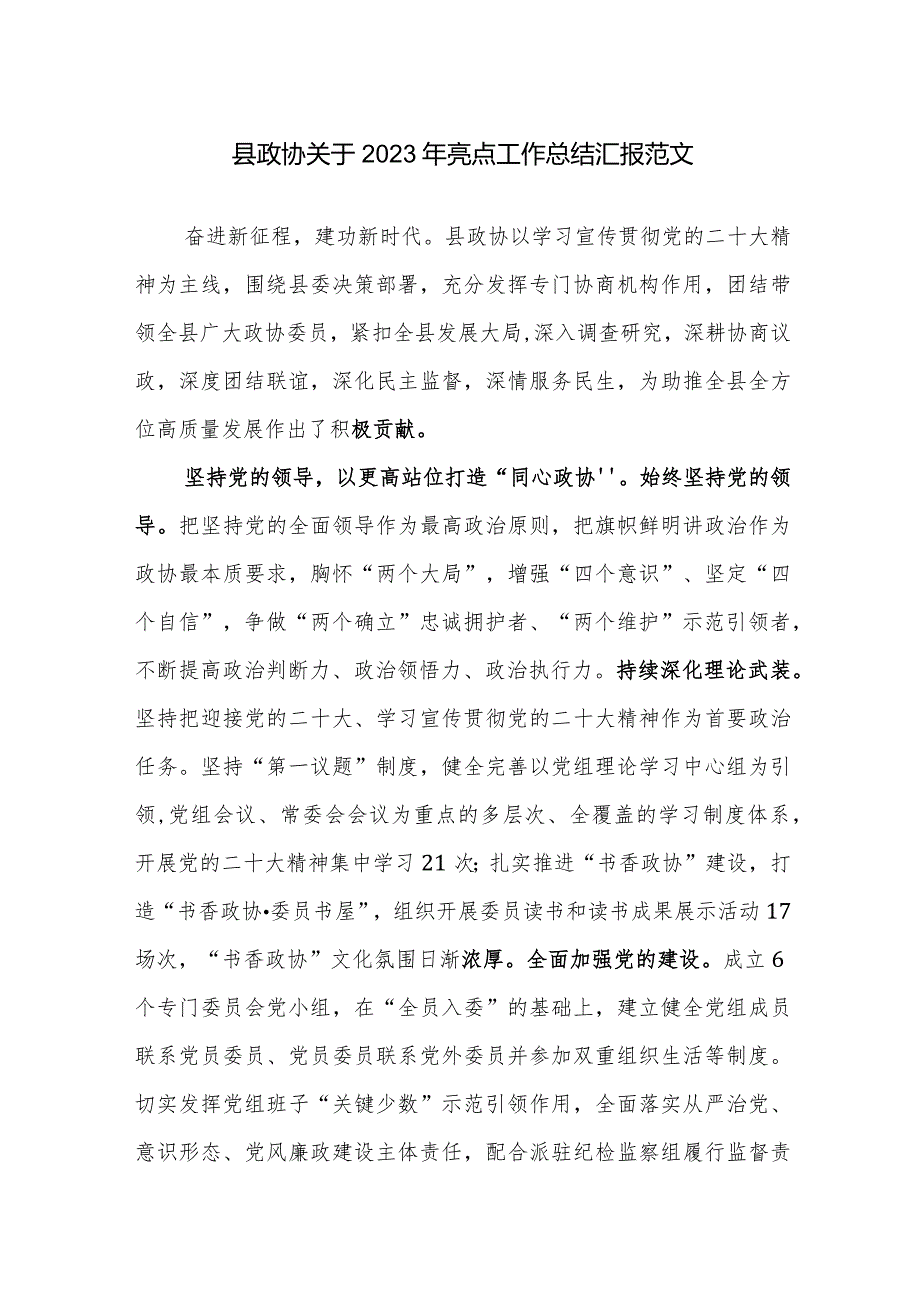 县政协关于 2023 年亮点工作总结汇报范文
奋进新征程，建功新时代。县政协以学习宣传贯彻党的二十大精
神为主线，围绕县委决策部署，充分发挥专门协商机构作用，团结带
领全县广大政协委员，紧扣全县发展大局,深入调查研究，深耕协商议
政，深度团结联谊，深化民主监督，深情服务民生，为助推全县全方
位高质量发展作出了积极贡献。
坚持党的领导，以更高站位打造“同心政协''。始终坚持党的领
导。把坚持党的全面领导作为最高政治原则，把旗帜鲜明讲政治作为
政协最本质要求，胸怀“两个大局”，增强“四个意识”、坚定“四
个自信”，争做“两个确立”忠诚拥护者、“两个维护”示范引领者，
不断提高政治判断力、政治领悟力、政治执行力。持续深化理论武装。
坚持把迎接党的二十大、学习宣传贯彻党的二十大精神作为首要政治
任务。坚持“第一议题”制度，健全完善以党组理论学习中心组为引
领,党组会议、常委会会议为重点的多层次、全覆盖的学习制度体系，
开展党的二十大精神集中学习 21 次；扎实推进“书香政协”建设，打
造“书香政协•委员书屋”，组织开展委员读书和读书成果展示活动 17
场次，“书香政协”文化氛围日渐浓厚。全面加强党的建设。成立 6
个专门委员会党小组，在“全员入委”的基础上，建立健全党组成员
联系党员委员、党员委员联系党外委员并参加双重组织生活等制度。
切实发挥党组班子“关键少数”示范引领作用，全面落实从严治党、
意识形态、党风廉政建设主体责任，配合派驻纪检监察组履行监督责